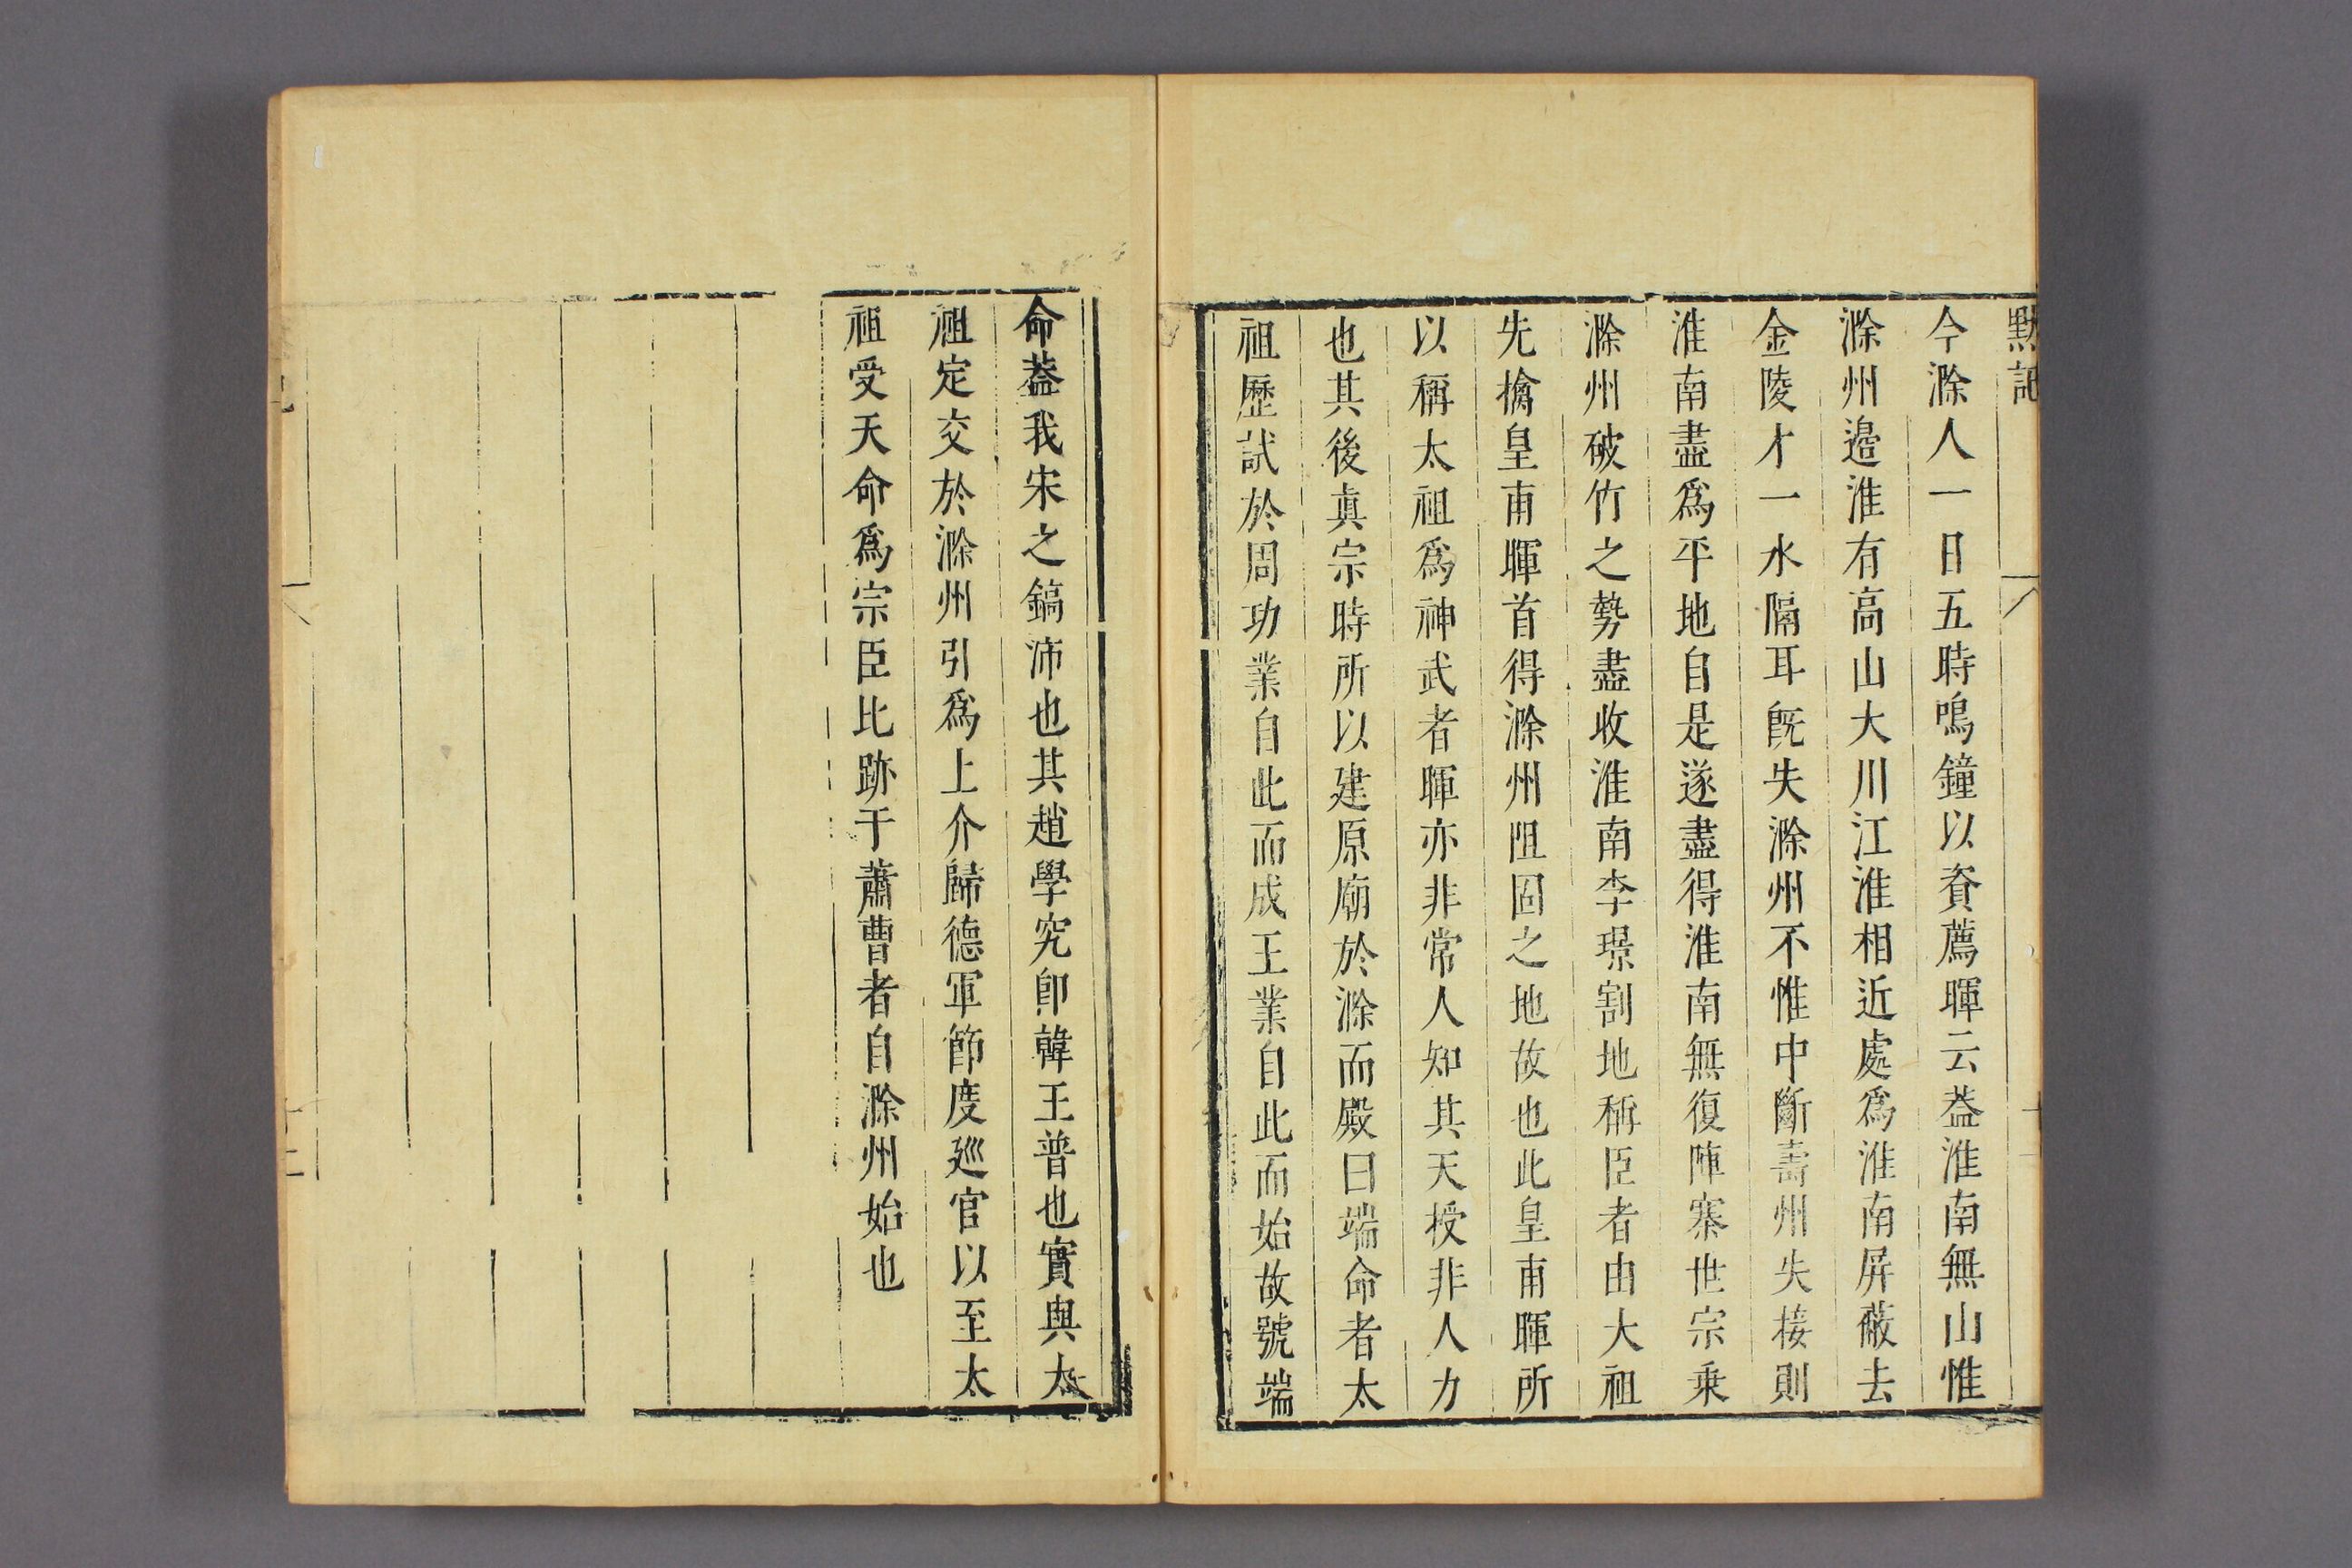 默記
今滁人一日五時鳴鐘以資薦暉云葢淮南無山惟
滁州邉淮有高山大川江淮相近處爲淮南屏蔽去
金陵才一水隔耳旣失滁州不惟中斷壽州失椄則
淮南盡爲平地自是遂盡得淮南無復陣寨世宗乗
滁州破竹之勢盡收淮南李璟割地稱臣者由大祖
先擒皇甫暉首得滁州阻固之地故也此皇甫暉所
以稱太祖爲神武者暉亦非常人知其天授非人力
也其後眞宗時所以建原廟於滁而殿曰端命者太
祖歷試於周功業自此而成王業自此而始故號端
命葢我宋之鎬沛也其趙學究卽韓王普也實與太
祖定交於滁州引爲上介歸德軍節度廵官以至太
祖受天命爲宗臣比跡于蕭曹者自滁州始也